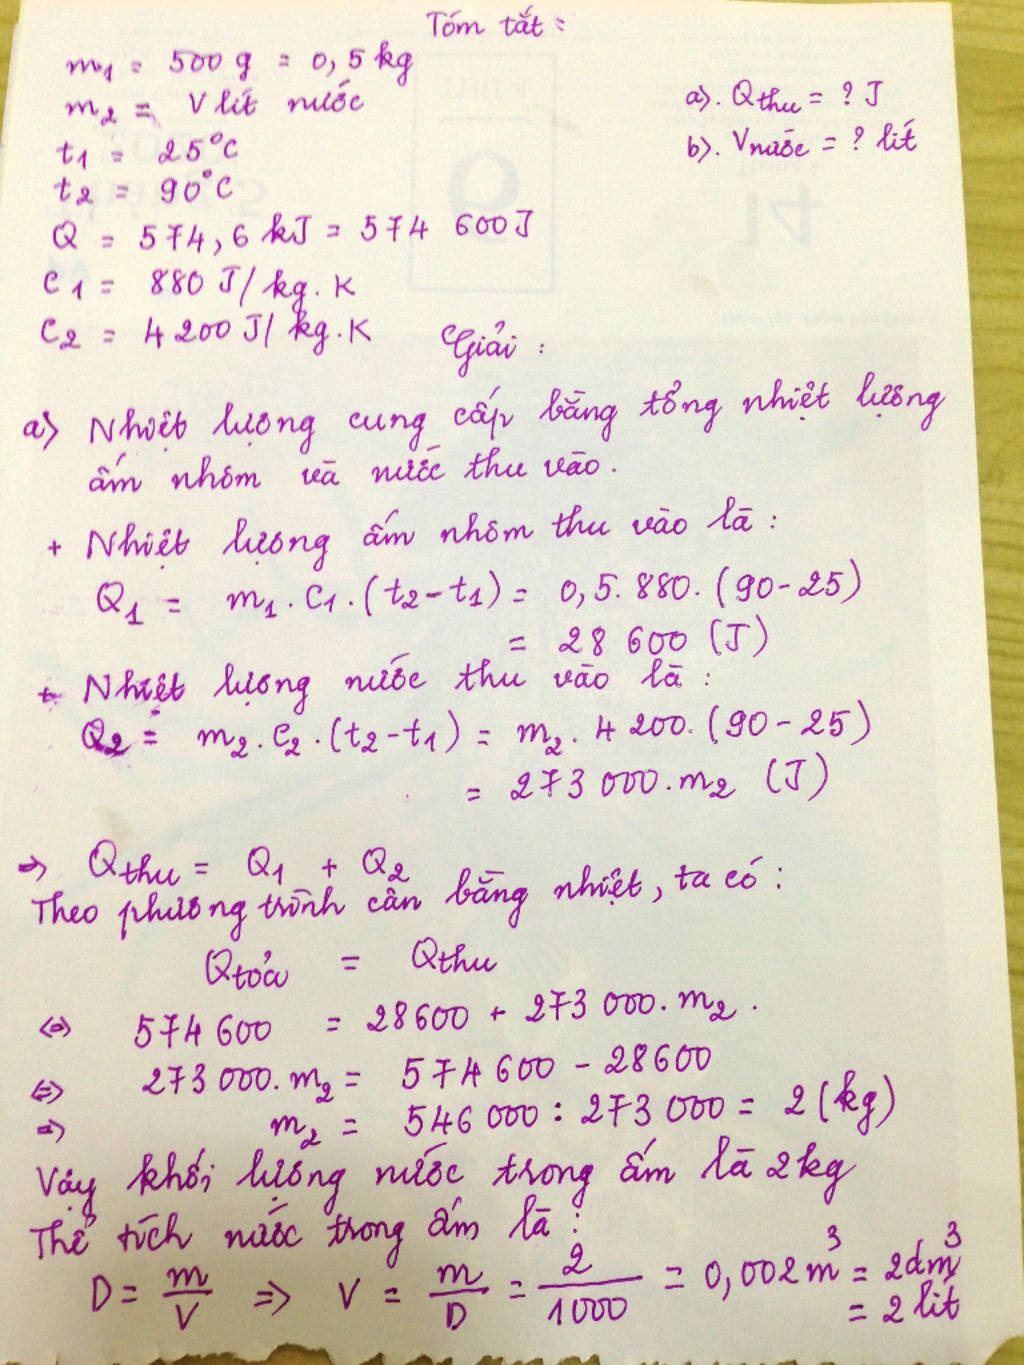 Tóm tắt:
m1 = 500g = 0,5kg
m2 = V lít nước
a). Qthu = ? J
t1 = 25°C
b). Vnước = ? lít
t2 = 90°C
Q = 574,6 kJ = 574 600J
C1 = 880 J/kg.K
C2 = 4200J/kg.K
Giải:
a) Nhiệt lượng cung cấp bằng tổng nhiệt lượng
ấm nhôm và nước thu vào.
+ Nhiệt lượng ấm nhôm thu vào là:
Q1 = m1.C1.(t2-t1) = 0,5.880.(90-25)
= 28 600 (J)
+ Nhiệt lượng nước thu vào là:
Q2 = m2.C2.(t2-t1) = m2.4200.(90-25)
= 273 000.m2 (J)
=> Qthu = Q1 + Q2
Theo phương trình cân bằng nhiệt, ta có:
Qtỏa = Qthu
<=> 574 600 = 28600 + 273 000.m2.
<=> 273 000.m2 = 574 600 - 28600
=> m2 = 546 000 : 273 000 = 2(kg)
Vậy khối lượng nước trong ấm là 2kg
Thể tích nước trong ấm là:
D = m/V => V = m/D = 2/1000 = 0,002m³ = 2dm³
= 2 lít